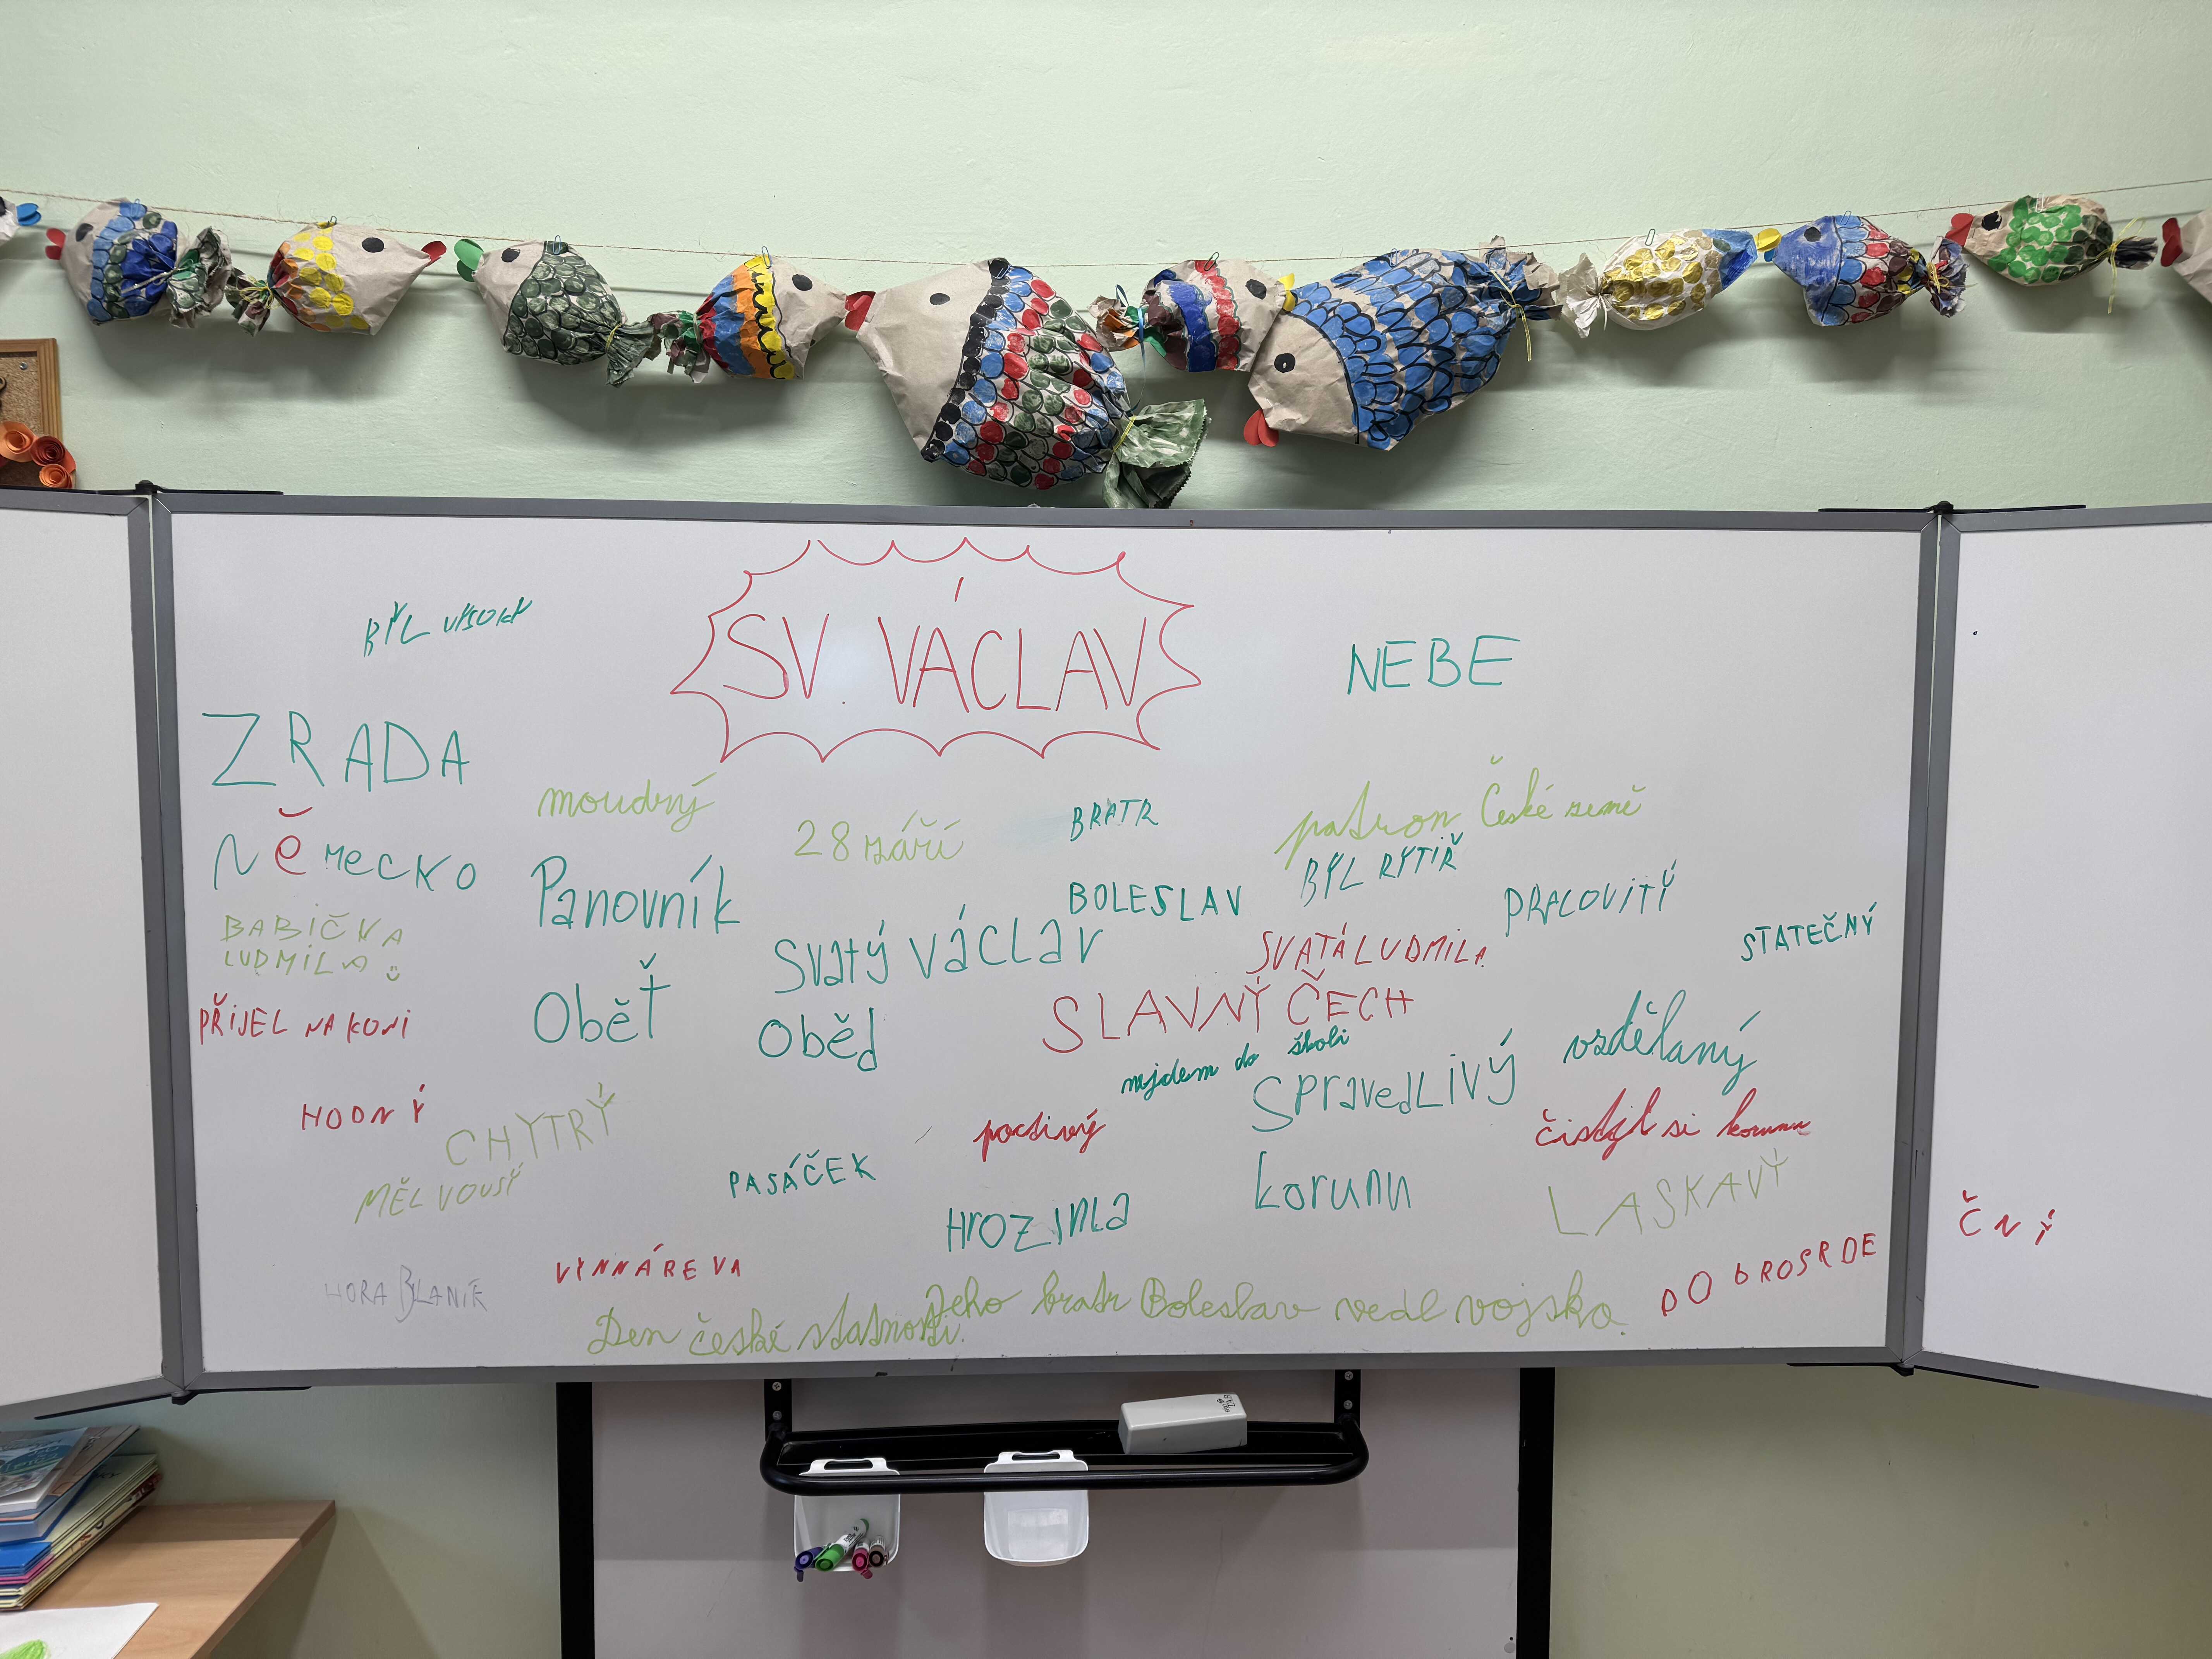 SV. VÁCLAV
BYL VYSOKÝ
NEBE
ZRADA
moudrý
28 září
BRATR
patron České země
Německo
Panovník
BOLESLAV
BYL RYTÍŘ
PRACOVITÝ
BABIČKA
LUDMILA
Svatý václav
SVATÁ LUDMILA
STATEČNÝ
PŘIJEL NA KONI
Oběť
Oběd
SLAVNÝ ČECH
nejdem do školi
vzdělaný
HODNÝ
CHYTRÝ
poctivý
SpravedLivý
čistil si korunu
MĚL VOUSY
PASÁČEK
Hrozinka
korunu
LASKAVÝ
HORA BLANÍK
VINNÁ REVA
DOBROSRDE
ČNÝ
Jeho bratr Boleslav vedl vojsko.
Den české státnosti.